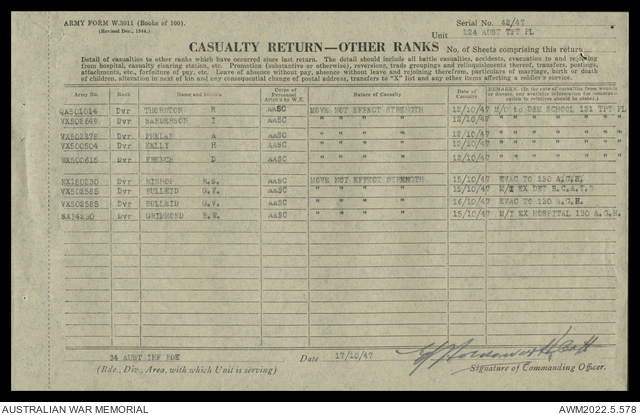 ARMY FORM W.3011 (Books of 100).
(Revised Dec., 1944.)
Serial No. 42/47
Unit 124 AUST TPT PL
CASUALTY RETURN—OTHER RANKS
No. of Sheets comprising this return
Detail of casualties to other ranks which have occurred since last return. The detail should include all battle casualties, accidents, evacuation to and rejoining
from hospital, casualty clearing station, etc. Promotion (substantive or otherwise), reversions, trade groupings and relinquishments thereof, transfers, postings,
attachments, etc., forfeiture of pay, etc. Leave of absence without pay, absence without leave and rejoining therefrom, particulars of marriage, birth or death
of children, alteration in next of kin and any consequential change of postal address, transfers to "X" list and any other items affecting a soldier's service.
Army No. Rank Name and Initials Corps of Personnel Nature of Casualty Date of Casualty REMARKS.
QX501014 Dvr THORNTON R AASC MOVE NOT EFFECT STRENGTH 12/10/47 M/O to DSM SCHOOL 121 TPT PL
VX502649 Dvr SANDERSON I AASC " " " " 12/10/47 " " " " "
VX502378 Dvr PHELAN A AASC " " " " 12/10/47 " " " " "
VX500504 Dvr KELLY H AASC " " " " 12/10/47 " " " " "
WX500615 Dvr FRENCH D AASC " " " " 12/10/47 " " " " "
Dvr BISHOP AASC MOVE NOT EFFECT STRENGTH 15/10/47 EVAC TO 130 A.G.H.
VX502585 Dvr HULLEID G.V. AASC " " " " 15/10/47 M/I EX DET B.C.A.T.S
VX502585 Dvr HULLEID G.V. AASC " " " " 16/10/47 EVAC TO 130 A.G.H.
SX34230 Dvr GRIMMOND R.W. AASC " " " " 15/10/47 M/I EX HOSPITAL 130 A.G.H.
34 AUST INF BDE
Date 17/10/47
(Bde., Div., Area, with which Unit is serving)
Signature of Commanding Officer.
AUSTRALIAN WAR MEMORIAL
AWM2022.5.578